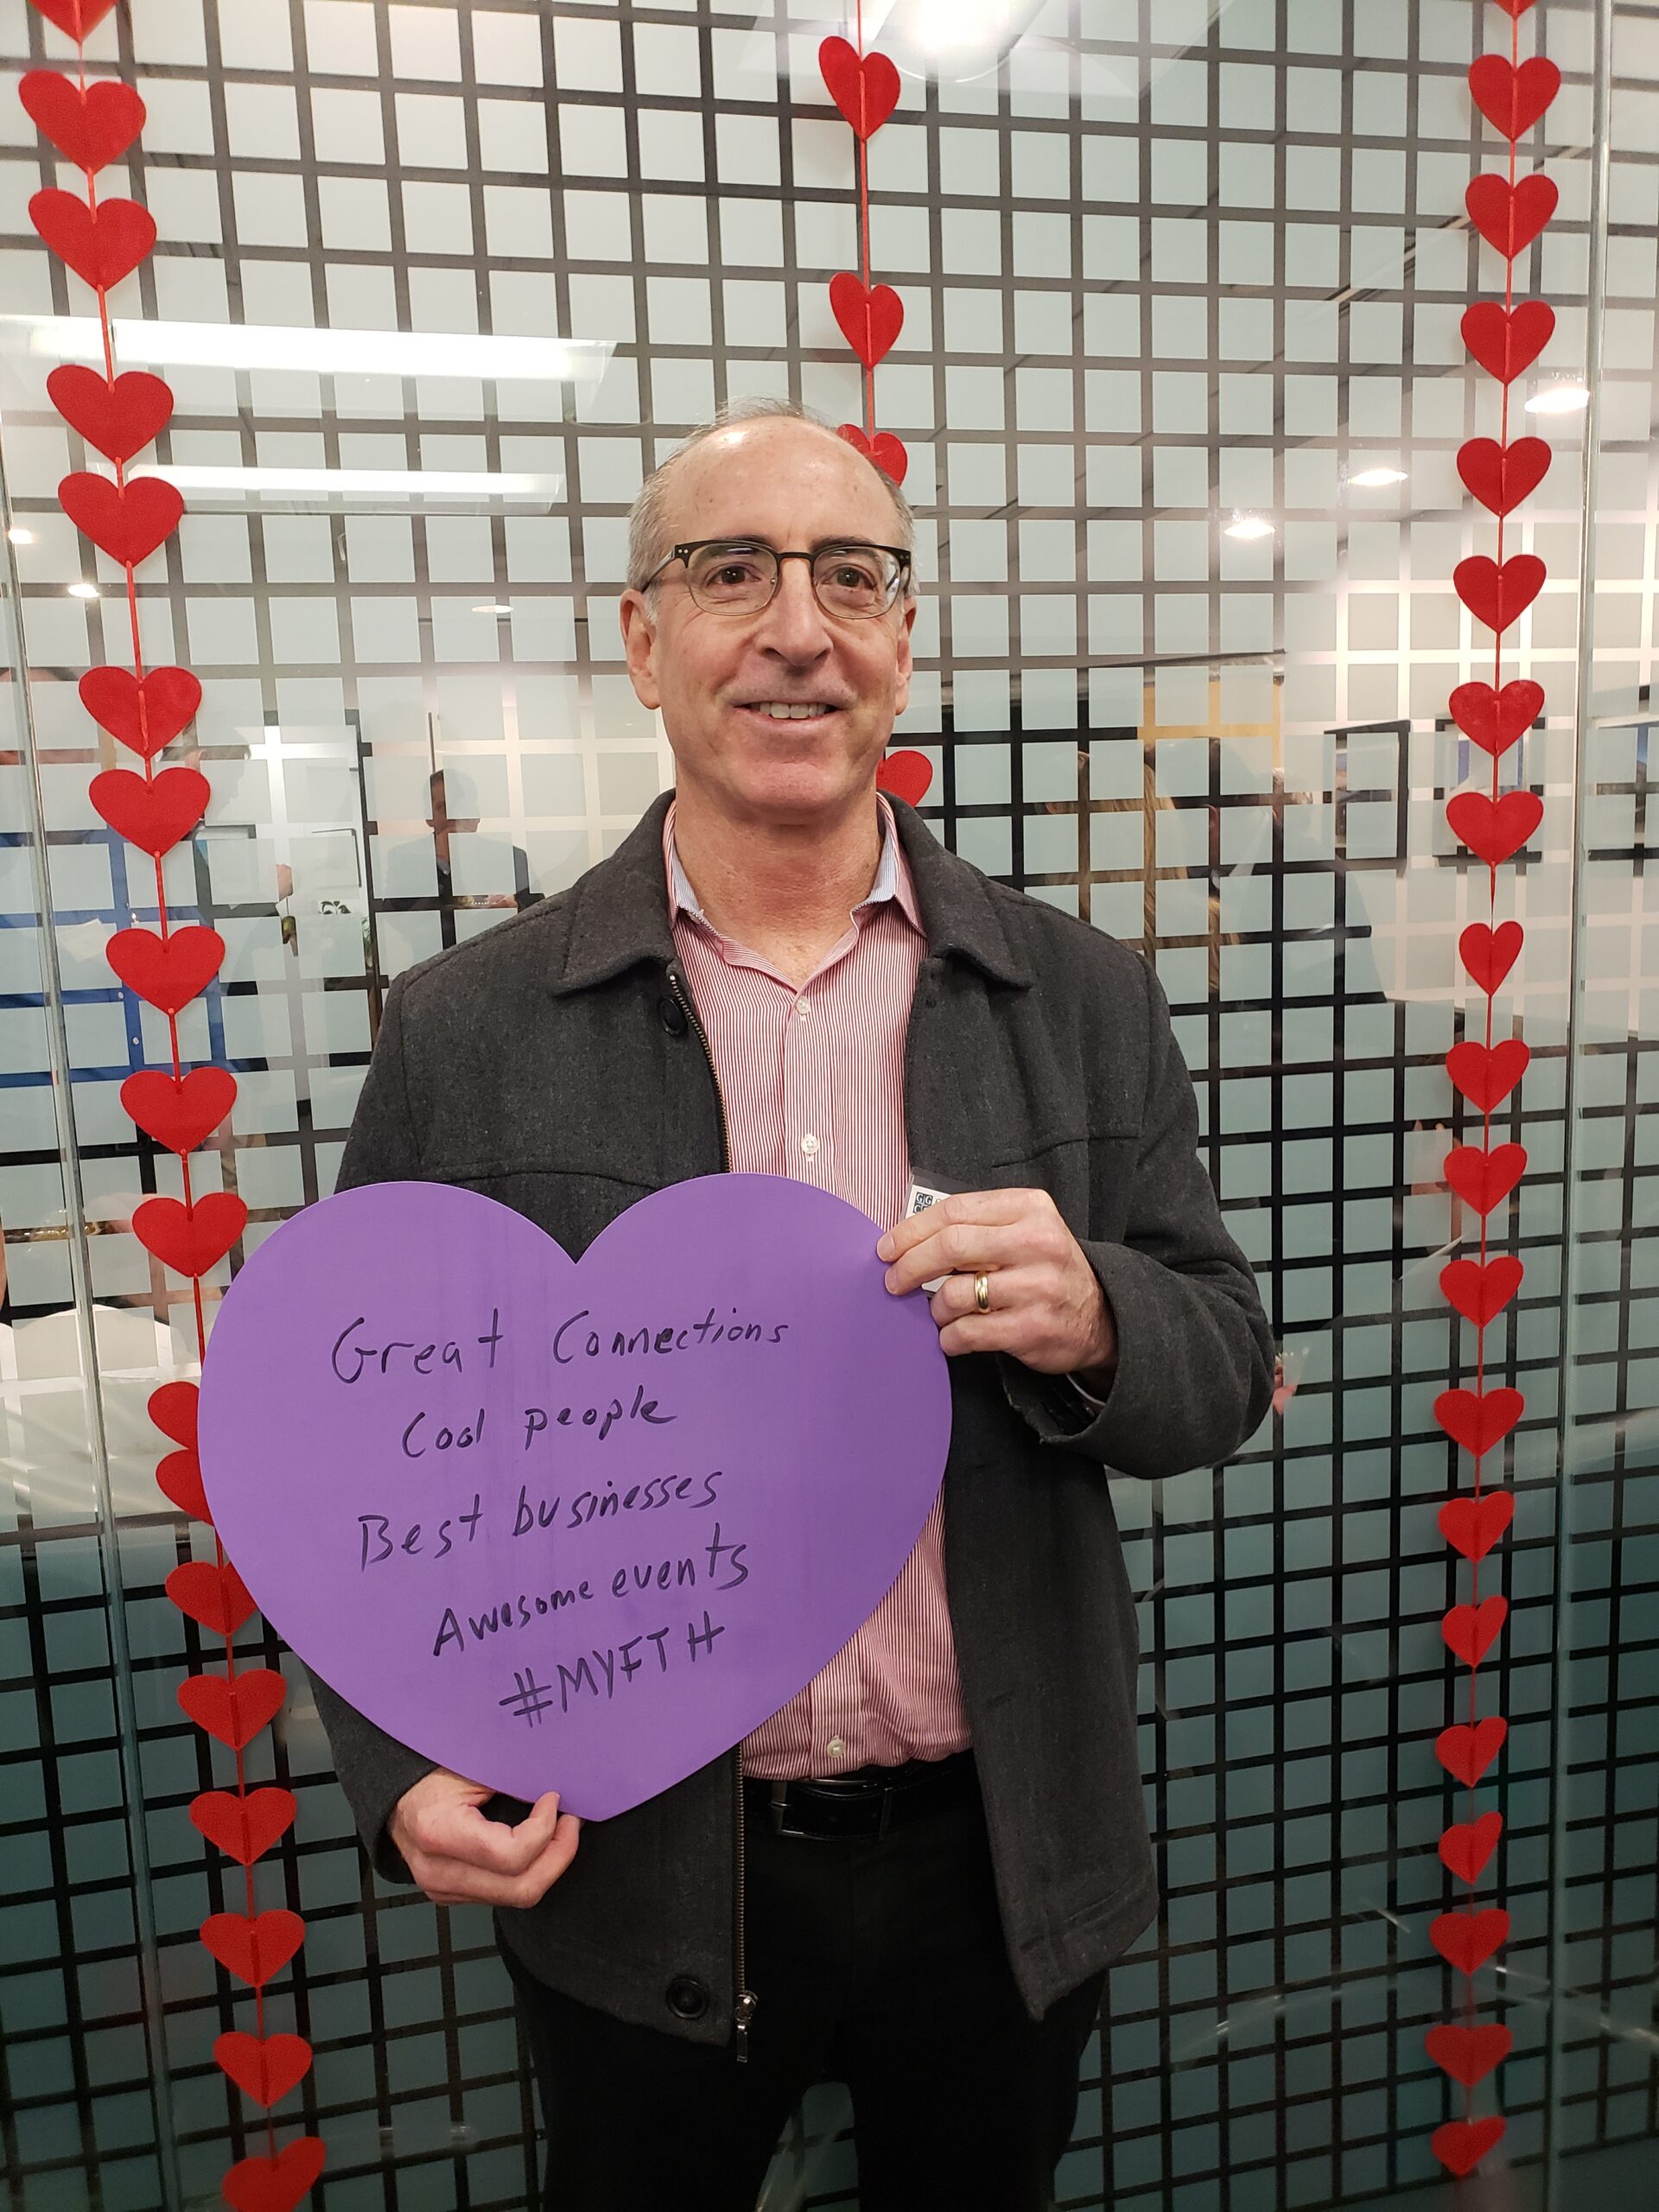 Great Connections
Cool people
Best businesses
Awesome events
#MYFTH